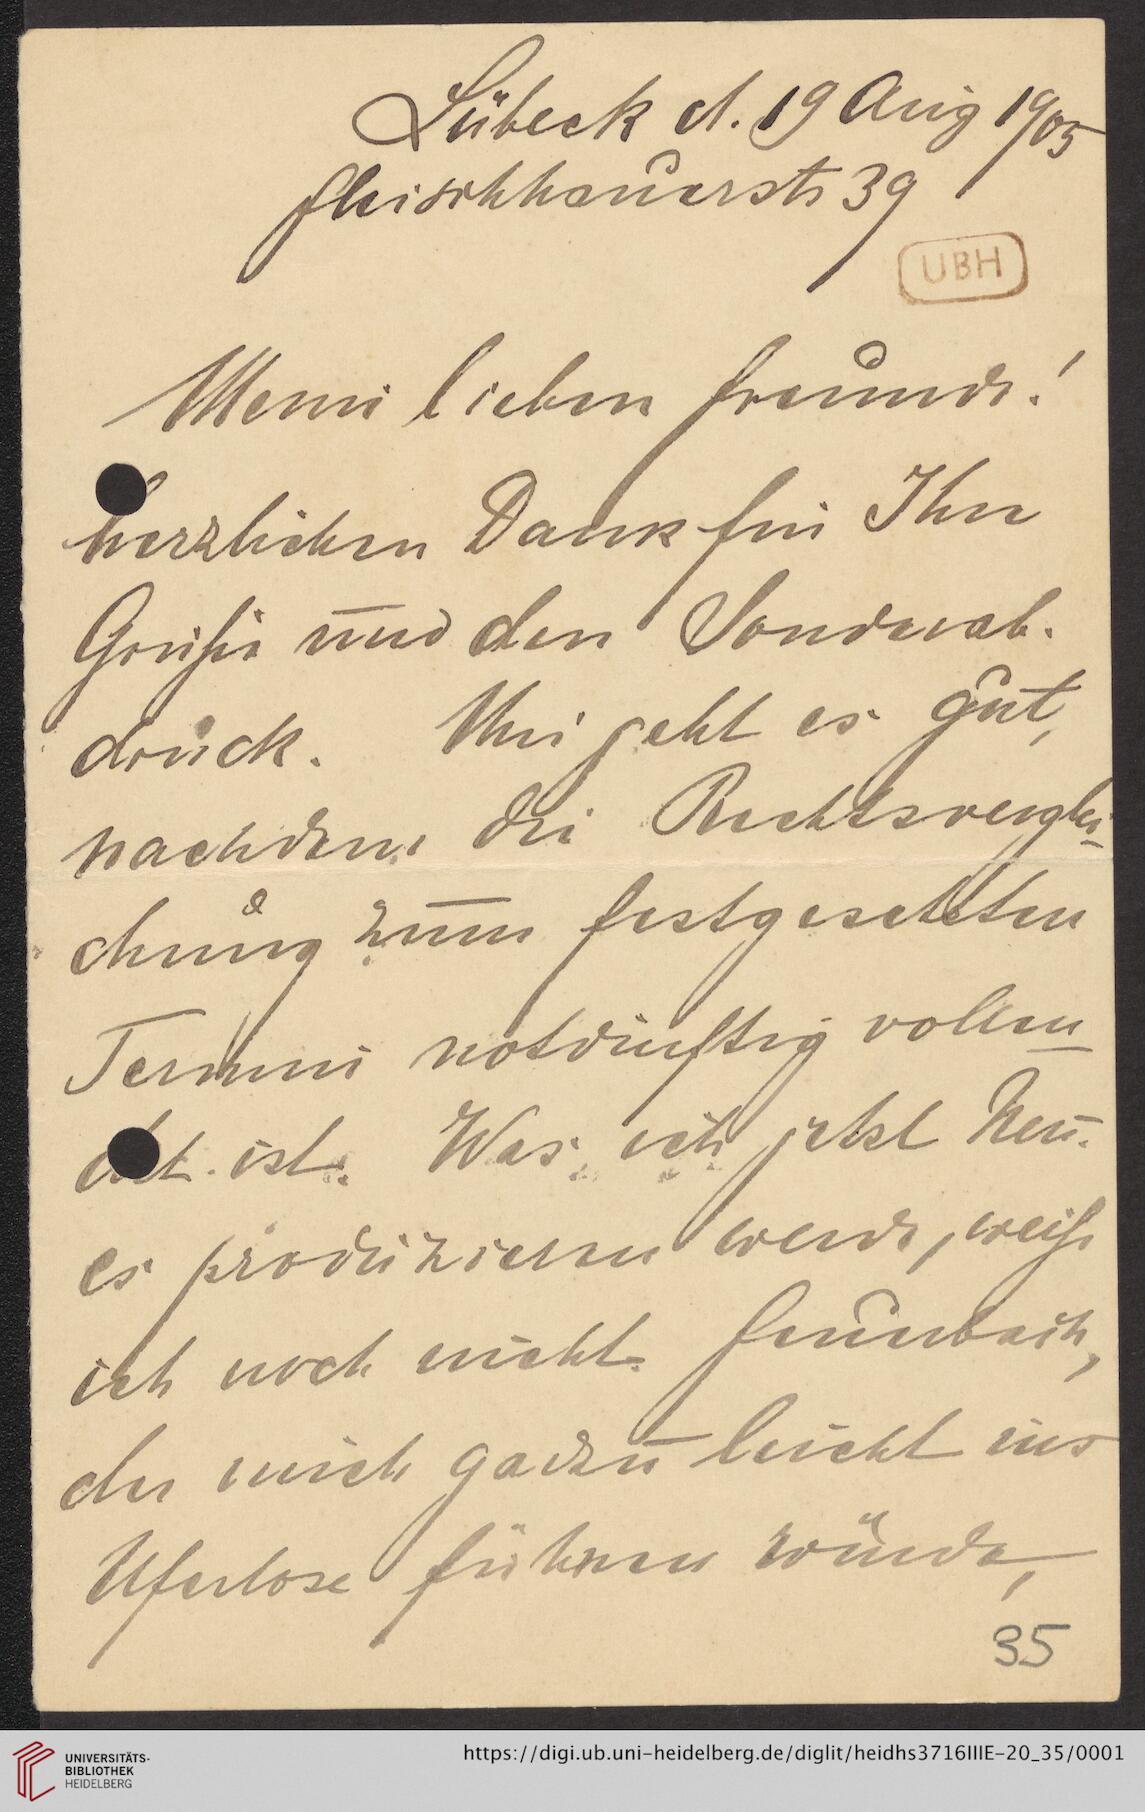 Lübeck d. 19 Aug 1905
Fleischhauerstr 39
UBH
Meine lieben Freunde!
Herzlichen Dank für Ihre
Grüße und den Sonderab-
druck. Mir geht es gut,
nachdem die Rechtsverglei-
chung zum festgesetzten
Termin notdürftig vollen-
det ist. Was ich jetzt Neu-
es produzieren werde, weiß
ich noch nicht. Feuerbach,
der mich gar zu leicht ins
Uferlose führen würde,
35
UNIVERSITÄTS-
BIBLIOTHEK
HEIDELBERG
https://digi.ub.uni-heidelberg.de/diglit/heidhs3716IIIE-20_35/0001